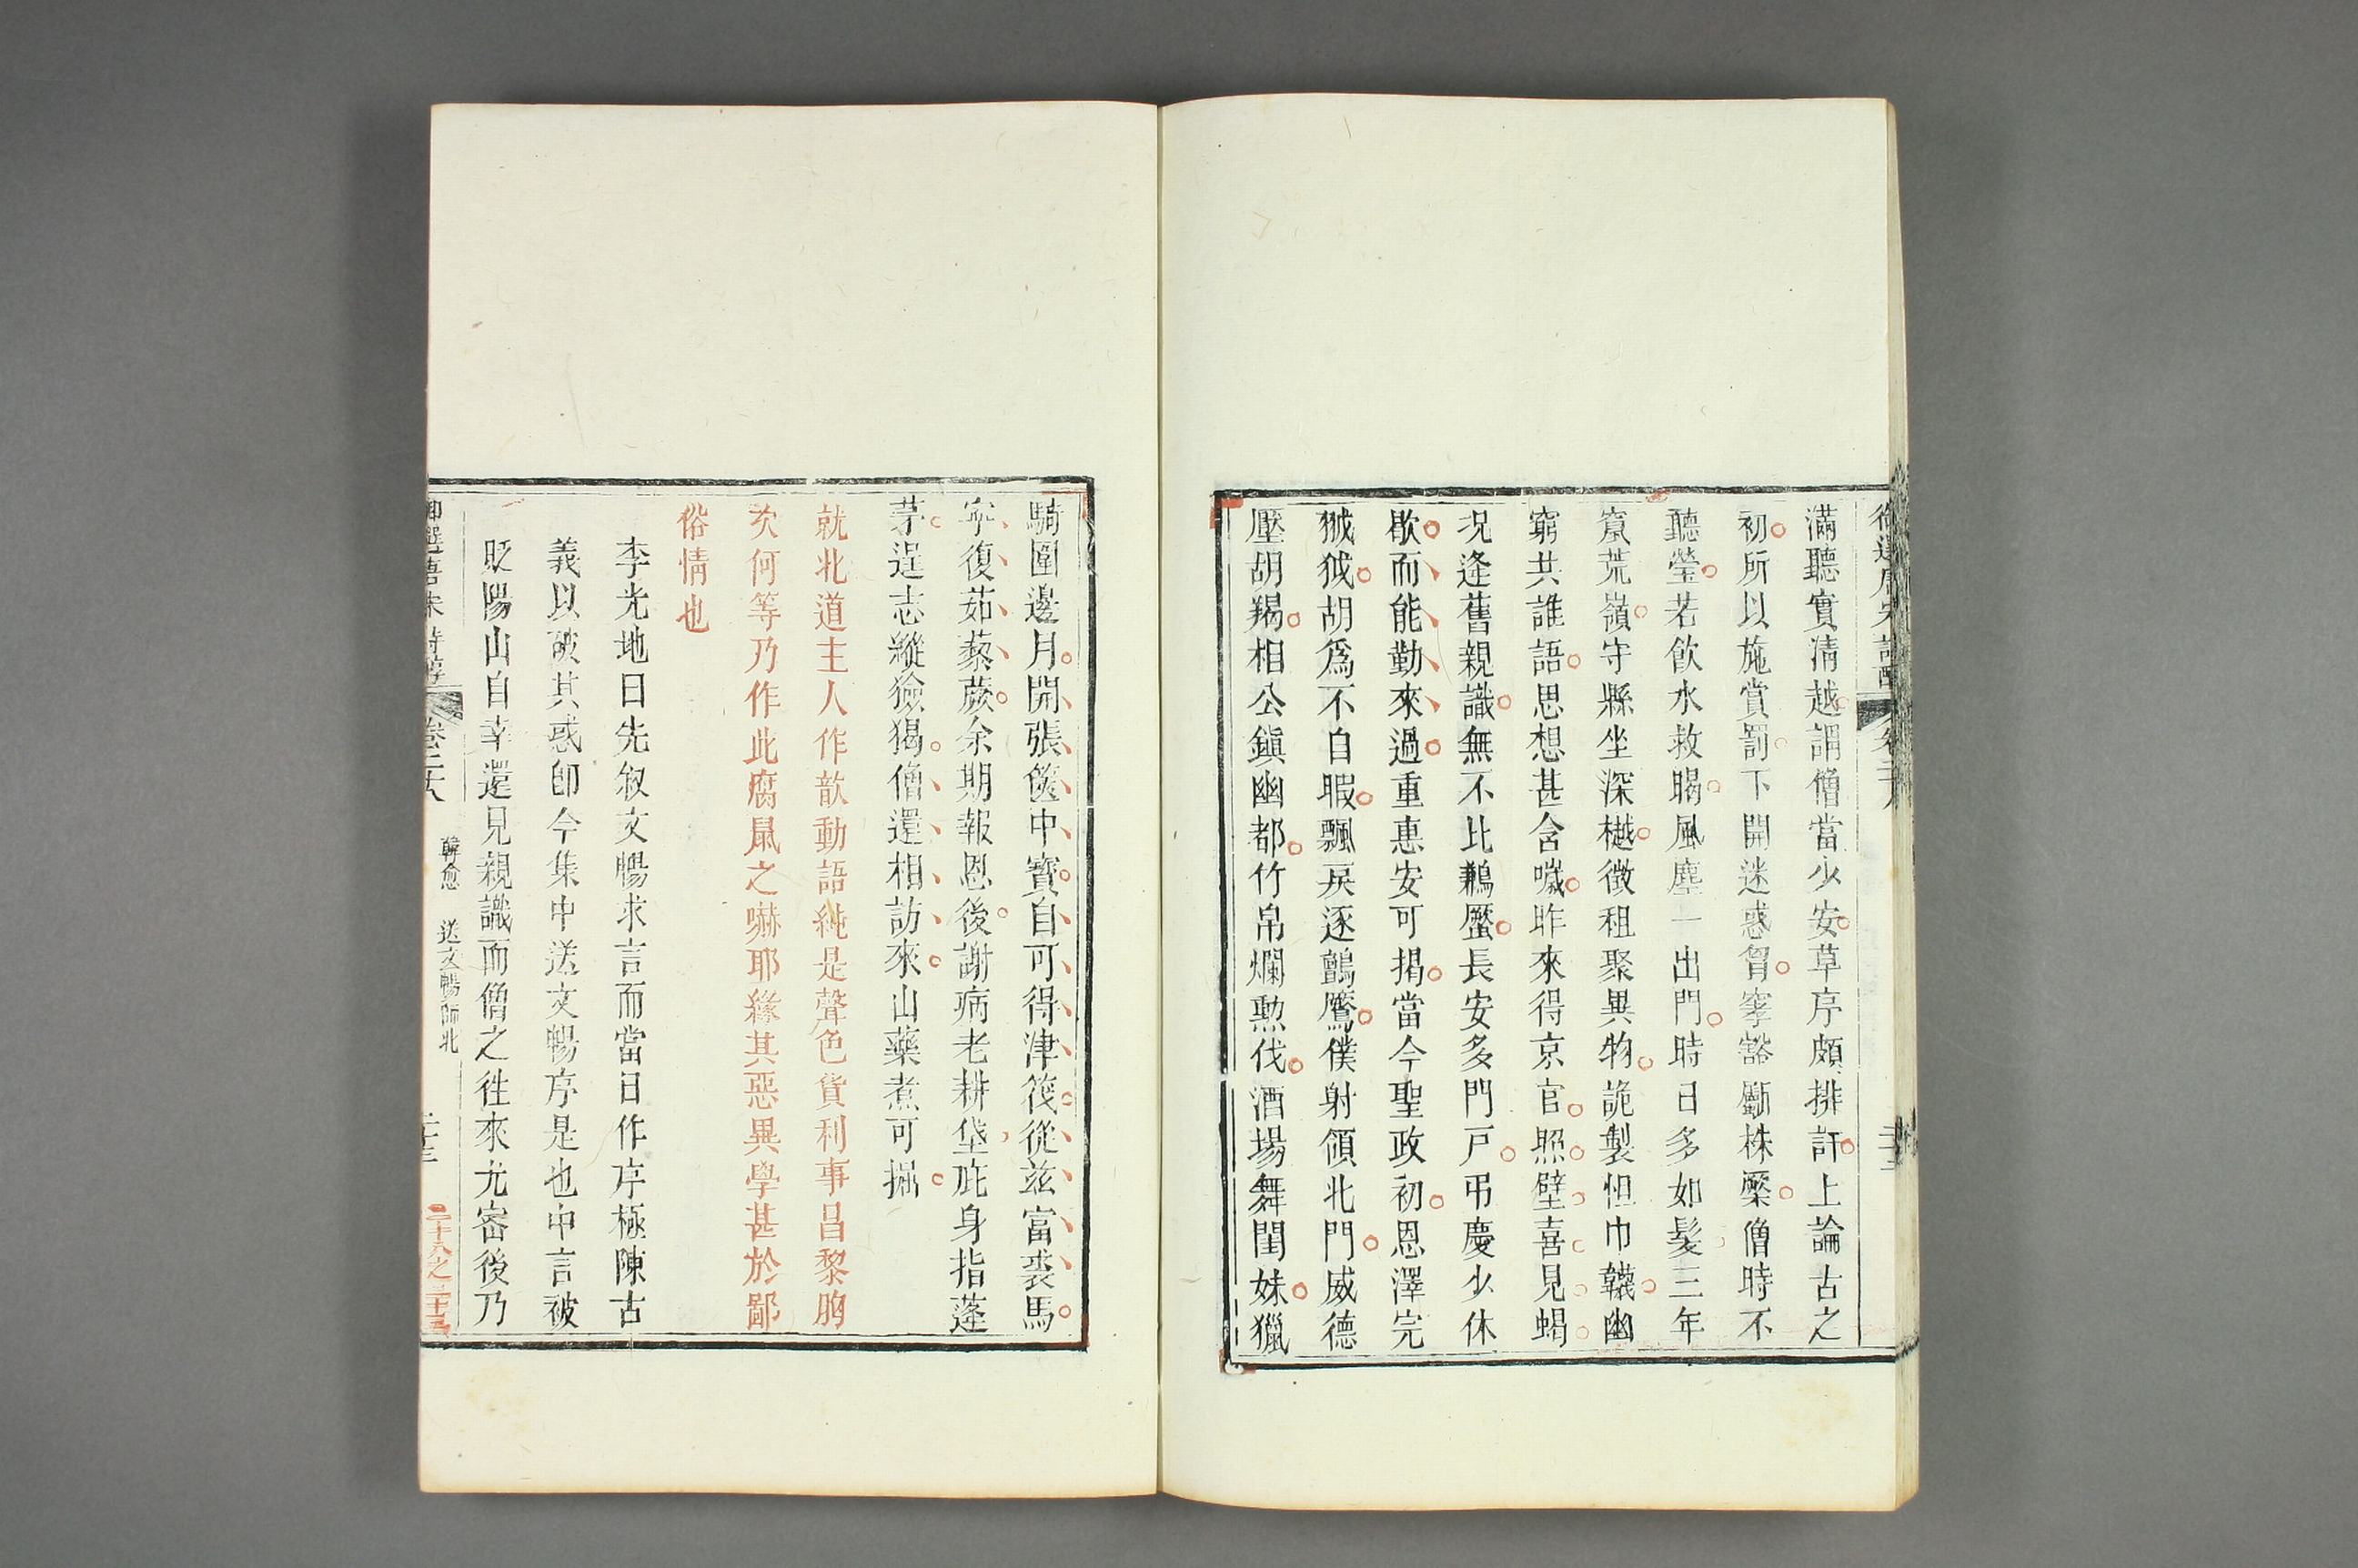 御選唐宋詩醇 卷二十八
滿聽實清越謂僧當少安草序頗排訐上論古之
初所以施賞罰下開迷惑胷窂豁斸株橜僧時不
聽瑩若飮水救暍風塵一出門時日多如髮三年
竄荒嶺守縣坐深樾徵租聚異物詭製怛巾韈幽
窮共誰語思想甚含噦昨來得京官照壁喜見蝎
况逢舊親識無不比鶼蟨長安多門戸弔慶少休
歇而能勤來過重惠安可揭當今聖政初恩澤完
㺒狘胡爲不自暇飄戾逐鸇鷢僕射領北門威德
壓胡羯相公鎭幽都竹帛爛勲伐酒場舞閨姝獵
騎圍邊月開張篋中寶自可得津筏從兹富裘馬
寧復茹藜蕨余期報恩後謝病老耕垡庇身指蓬
茅逞志縱獫猲僧還相訪來山藥煮可掘
就北道主人作歆動語純是聲色貨利事昌黎胸
次何等乃作此腐鼠之嚇耶緣其惡異學甚於鄙
俗情也
李光地曰先叙文暢求言而當日作序極陳古
義以破其惑卽今集中送文暢序是也中言被
貶陽山自幸還見親識而僧之徃來尤密後乃
御選唐宋詩醇 卷二十八 韓愈 送文暢師北 二十三